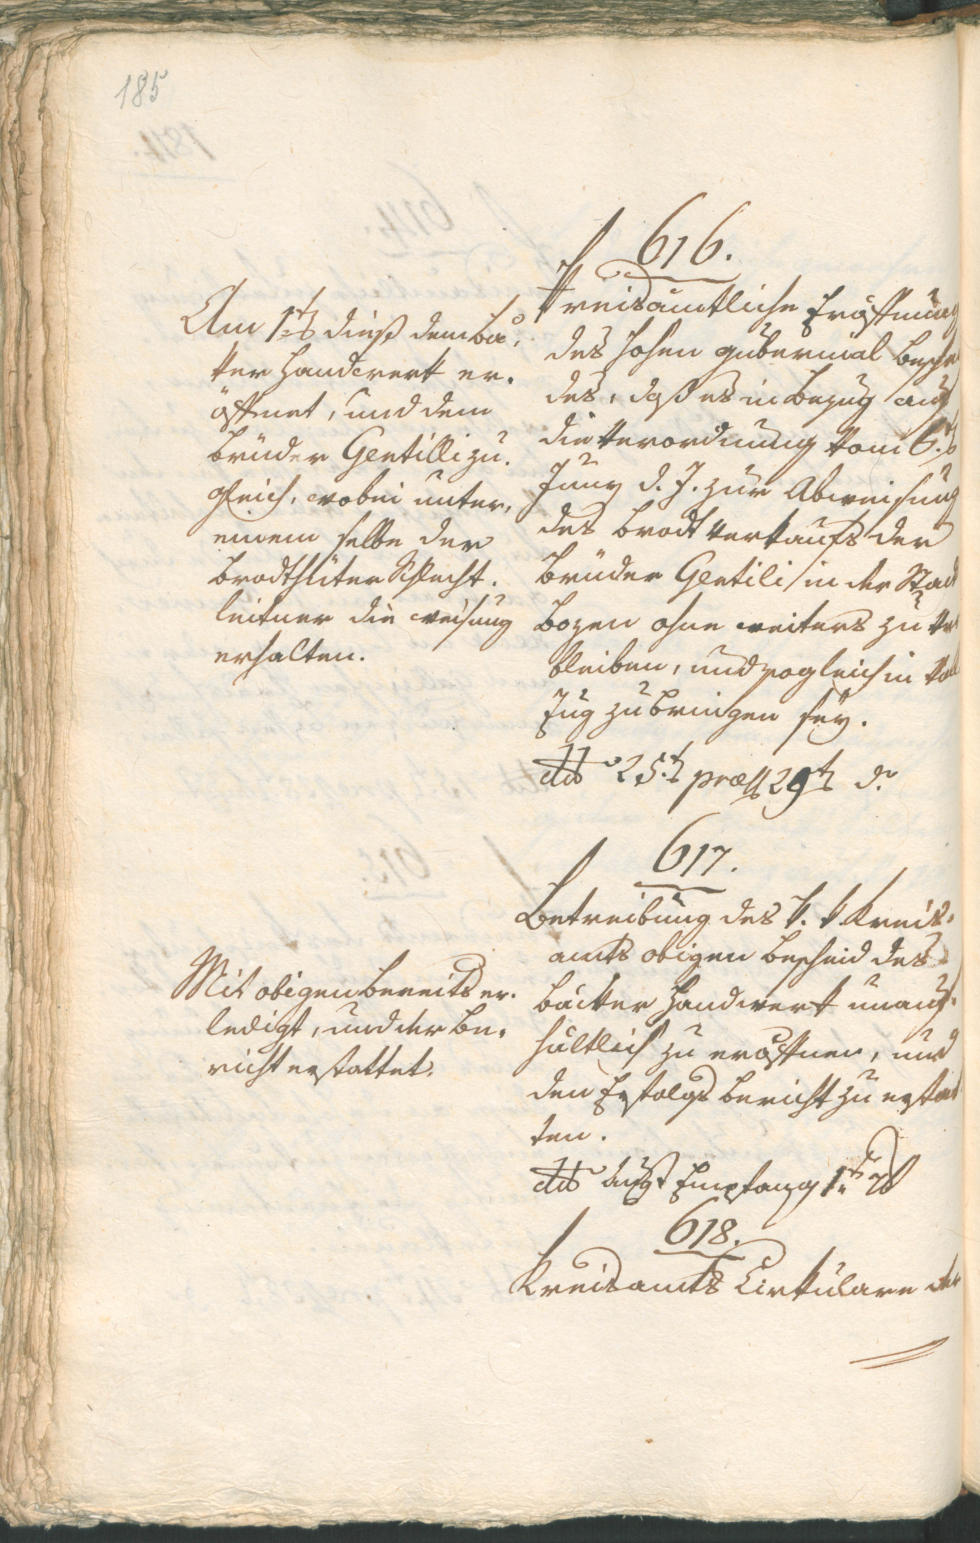 185
616.
Kreisämtliche Eröffnung
des hohen gubernial beschei
des, daß es in bezug auf
die Verordnung vom 6.ts
Juny d. J. zur Abweisung
des brodt verkaufs der
brüder Gentili in der Stadt
bozen ohne weiters zu ver
bleiben, und sogleich in voll
zug zu bringen sey.
dto 25.ts præs 29ts d.
Am 1ts dieß dem bä,
ker Handwerk er.
öffnet, und dem
brüder Gentilli zu.
gleich, wobei unter,
einem selbe der
brodthüter Schlecht.
leitner die weisung
erhalten.
617.
Betreibung des k. k Kreis,
amts obigen bescheid des
bäcker Handwerk unauf,
hältlich zu eröffnen, und
den Erfolgs bericht zu erstat
ten.
dto Empfang 1ts
Mit obigen bereits er.
ledigt, und der be,
richt erstattet.
618.
Kreisamts Cirkulare der